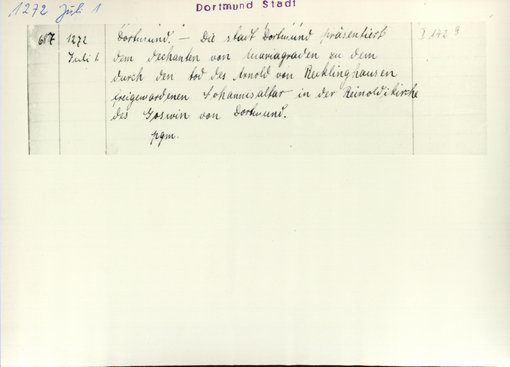 1272 Juli 1
Dortmund Stadt
687 1272 Dortmund. — Die Stadt Dortmund präsentiert
Juli 1. dem Dechanten von Mariagraden zu dem
durch den Tod des Arnold von Recklinghausen
freigewordenen Johannesaltar in der Reinoldikirche
des Goswin von Dortmund.
pgm.